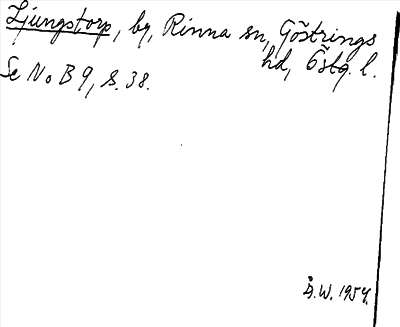 Ljungstorp, by, Rinna sn, Göstrings
hd, Östg. l.
Se No B 9, s. 38.
Å.W. 1954.